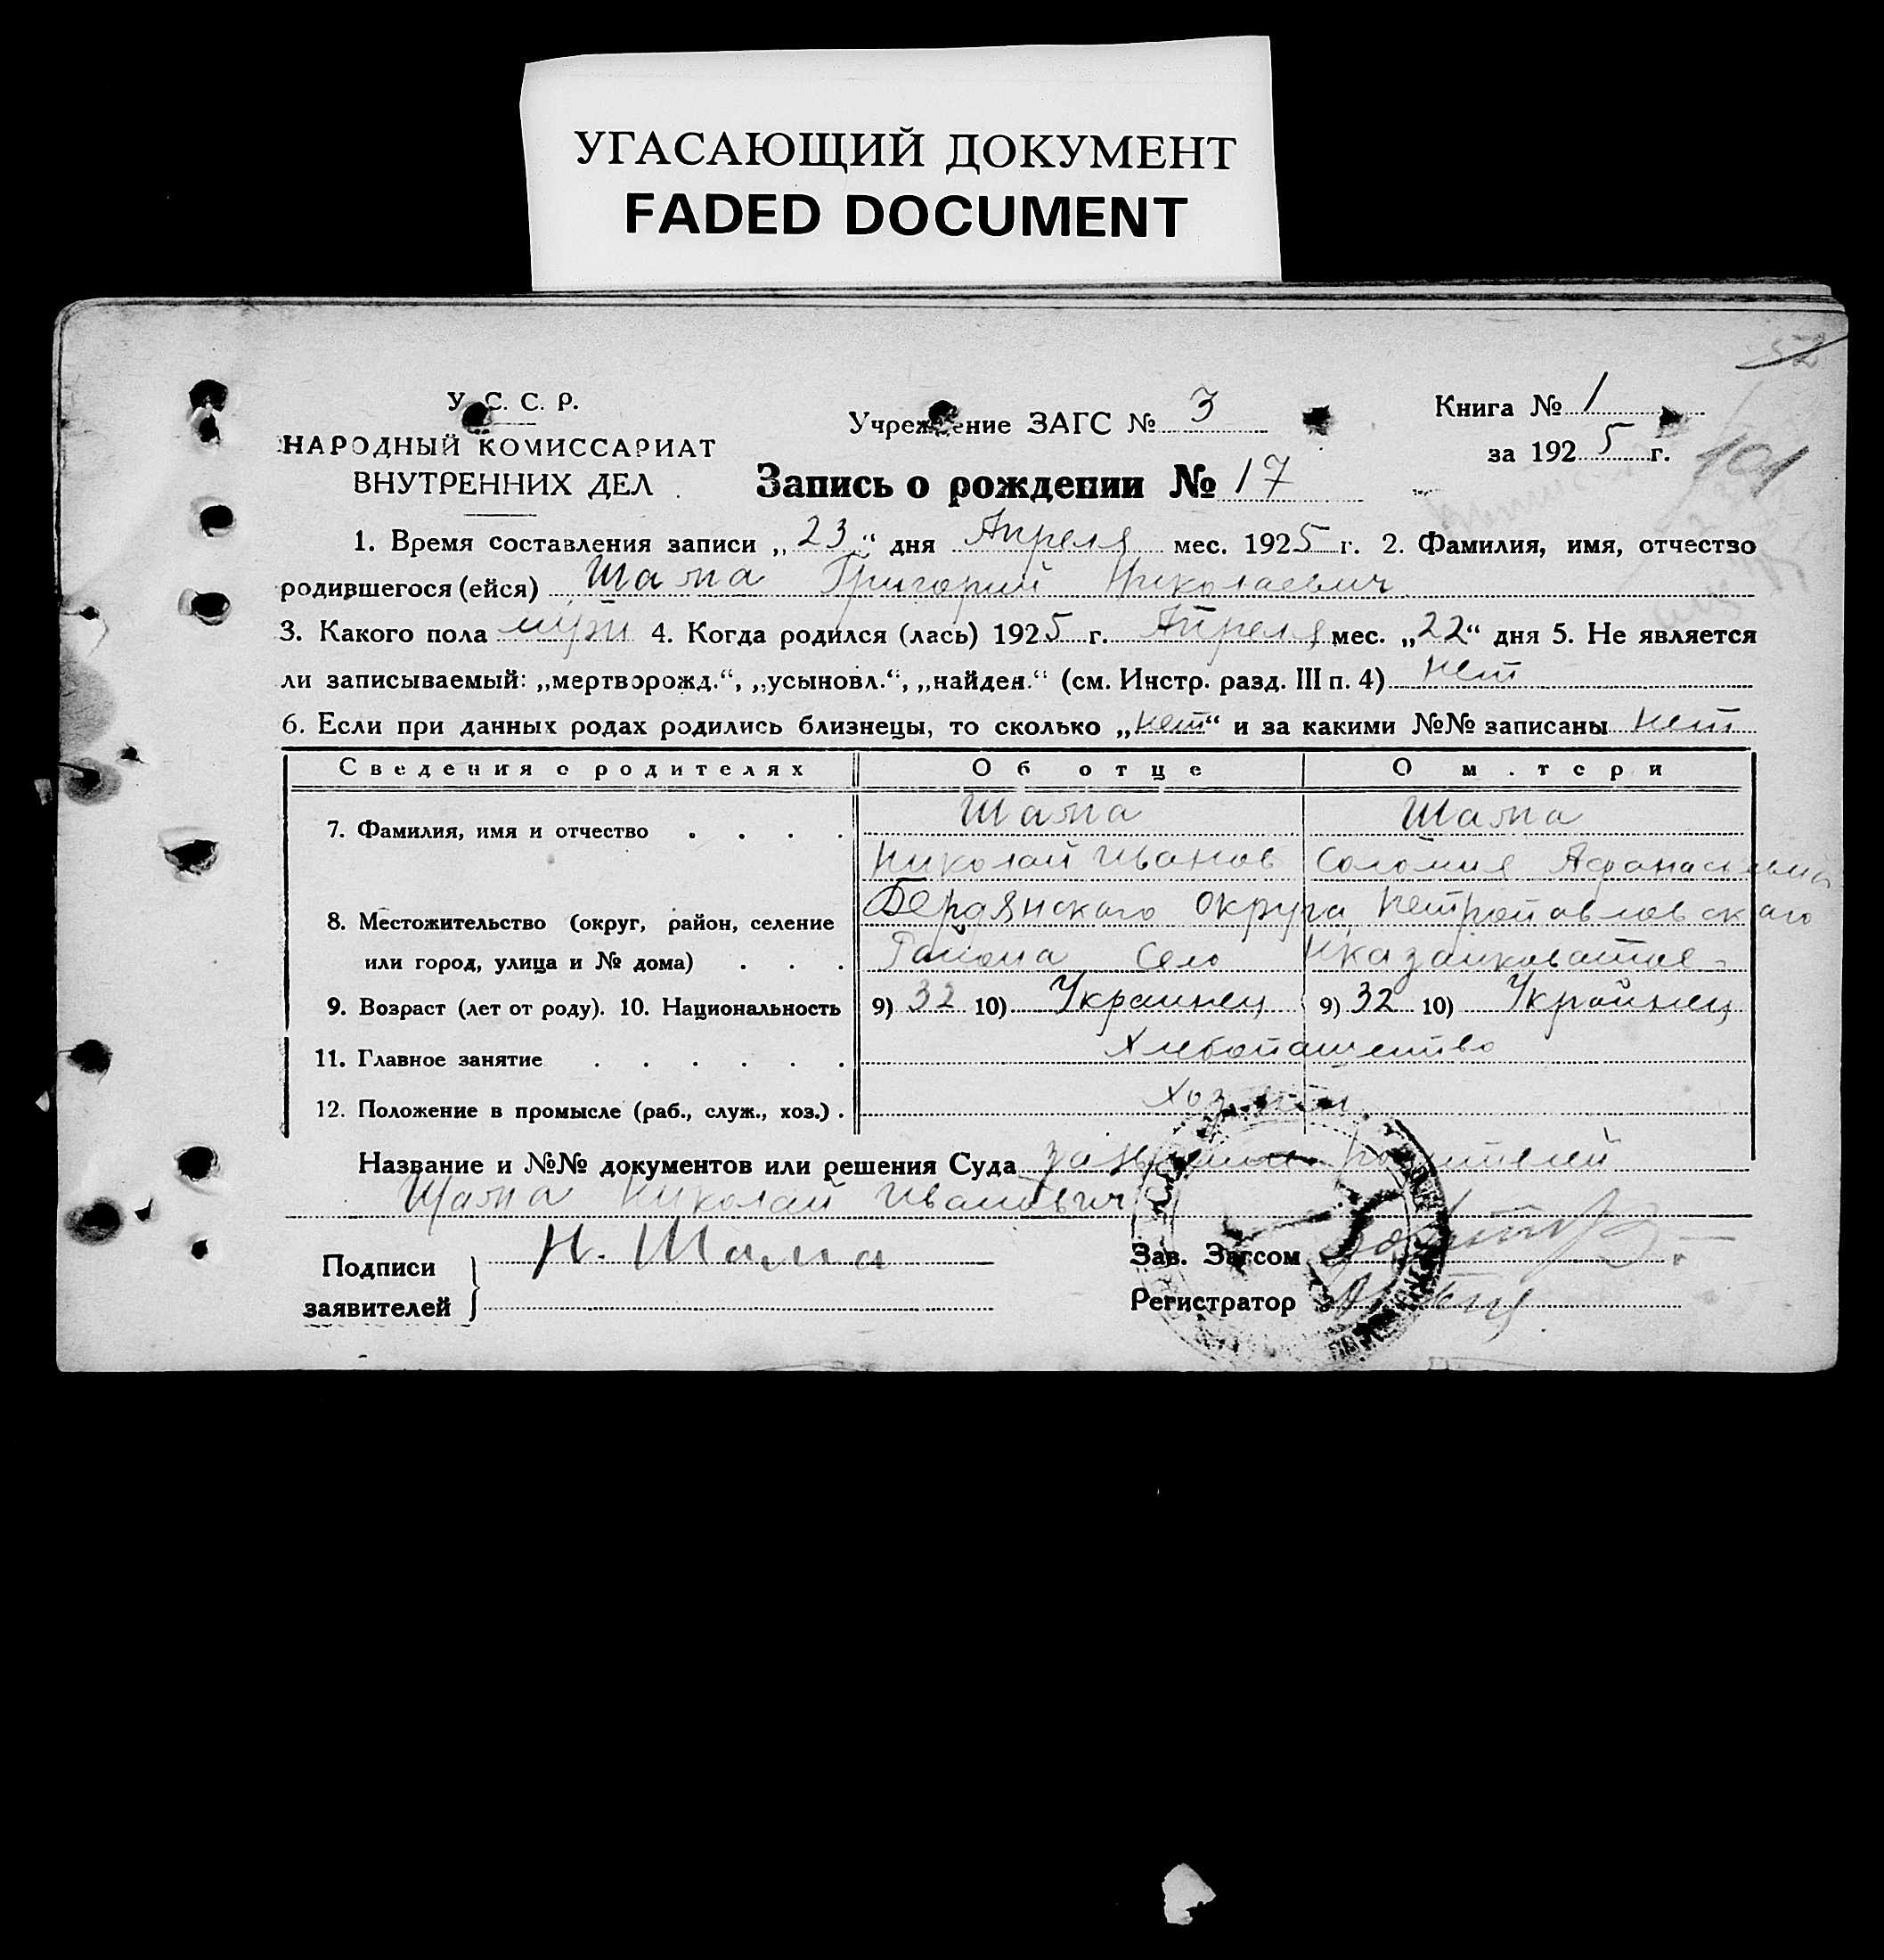 УГАСАЮЩИЙ ДОКУМЕНТ
FADED DOCUMENT
52
У. С. С. Р.
НАРОДНЫЙ КОМИССАРИАТ
ВНУТРЕННИХ ДЕЛ
Учреждение ЗАГС № 3
Книга № 1
за 1925 г.
101
Запись о рождении № 17
1. Время составления записи „23“ дня Апреля мес. 1925 г. 2. Фамилия, имя, отчество
родившегося (ейся) Шама Григорий Николаевич
3. Какого пола муж 4. Когда родился (лась) 1925 г. Апреля мес. „22“ дня 5. Не является
ли записываемый: „мертворожд.“, „усыновл.“, „найден.“ (см. Инстр. разд. III п. 4) нет
6. Если при данных родах родились близнецы, то сколько „нет“ и за какими №№ записаны нет
Сведения о родителях Об отце О м.тери
7. Фамилия, имя и отчество Шама Шама
Николай Иванов Соломия Афанасьевна
8. Местожительство (округ, район, селение Бердянского округа Петропавловского
или город, улица и № дома) Района Село
9. Возраст (лет от роду). 10. Национальность 9) 32 10) Украинец 9) 32 10) Украинец
11. Главное занятие Хлебопашество
12. Положение в промысле (раб., служ., хоз.)
Название и №№ документов или решения Суда родителей
Шама Николай Иванович
Подписи
заявителей
Н. Шама
Зав. Загсом
Регистратор